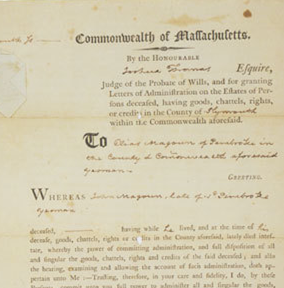 Commonwealth of Massachusetts.
By the Honourable
Joshua Thomas Esquire,
Judge of the Probate of Wills, and for granting
Letters of Administration on the Estates of Per-
sons deceased, having goods, chattels, rights,
or credits in the County of Plymouth
within the Commonwealth aforesaid.
To Elias Magoun of Pembroke in
the County & Commonwealth aforesaid
yeoman.
Greeting.
Whereas John Magoun, late of sd Pembroke
yeoman
deceased, having while he lived, and at the time of his
decease, goods, chattels, rights or credits in the County aforesaid, lately died intes-
tate, whereby the power of committing administration, and full disposition of all
and singular the goods, chattels, rights and credits of the said deceased; and also
the hearing, examining and allowing the account of such administration, doth ap-
pertain unto Me:—Trusting, therefore, in your care and fidelity, I do, by these
full power to administer all and singular the goods,